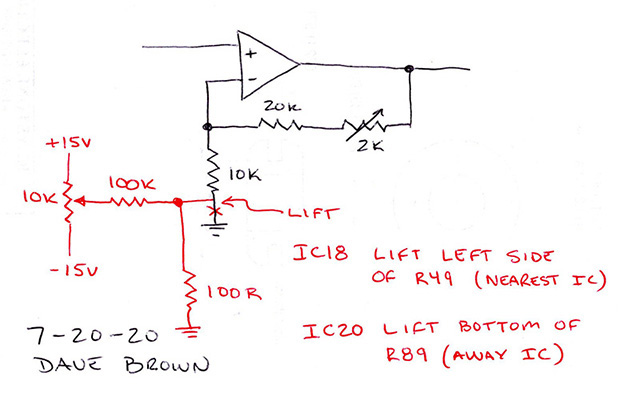 +
-
20K
2K
10K
+15V
10K
100K
-15V
LIFT
100R
IC18 LIFT LEFT SIDE
OF R49 (NEAREST IC)
IC20 LIFT BOTTOM OF
R89 (AWAY IC)
7-20-20
DAVE BROWN